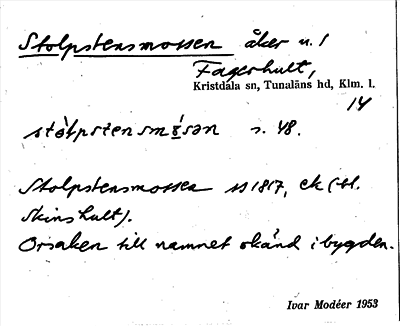 Stolpstensmossen åker n. 1
Fagerhult,
Kristdala sn, Tunaläns hd, Klm. l.
14
stòlpstensmɤ́sən s. 48.
Stolpstensmossen 1817, ek (tl.
Skinshult).
Orsaken till namnet okänd i bygden.
Ivar Modéer 1953